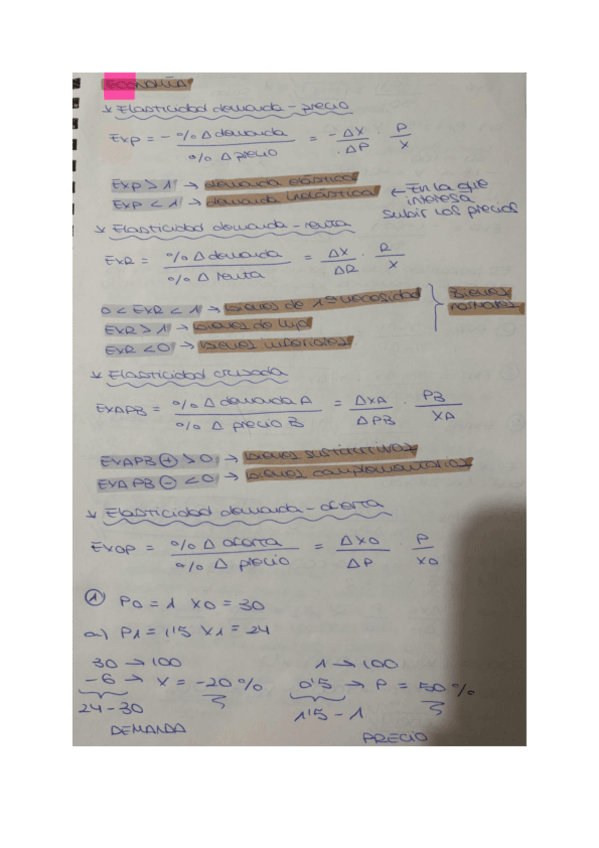 ECONOMÍA
↓ Elasticidad demanda - precio
EXP = - % Δ demanda / % Δ precio = - ΔX / ΔP · P / X
EXP > 1 → demanda elástica
EXP < 1 → demanda inelástica ← En la que interesa subir los precios
↓ Elasticidad demanda - renta
EXR = % Δ demanda / % Δ renta = ΔX / ΔR · R / X
0 < EXR < 1 → bienes de 1ª necesidad
EXR > 1 → bienes de lujo } Bienes normales
EXR < 0 → bienes inferiores
↓ Elasticidad cruzada
EXAPB = % Δ demanda A / % Δ precio B = ΔXA / ΔPB · PB / XA
EXAPB ⊕ > 0 → bienes sustitutivos
EXAPB ⊖ < 0 → bienes complementarios
↓ Elasticidad demanda - oferta
EXOP = % Δ oferta / % Δ precio = ΔXO / ΔP · P / XO
① P0 = 1 X0 = 30
a) P1 = 1'5 X1 = 24
30 → 100 1 → 100
-6 → X = -20 % 0'5 → P = 50 %
24 - 30 1'5 - 1
DEMANDA PRECIO